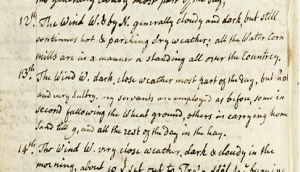 the genearlly cloudy most part of the day.
12th. The Wind W. by N. generally cloudy and dark, but still
continues hot & parching dry weather; all the Water Corn
Mills are in a manner a standing all over the Country.
13th. The Wind W. dark, close weather most part of the day, but hot
and very Sultry, my servants are employed as before some in
second fallowing the Wheat ground, others in carrying home
Sand till 9, and all the rest of the day in the hay.
14th. The Wind W. very close weather, dark & cloudy in the
morning, about 10 I set out to